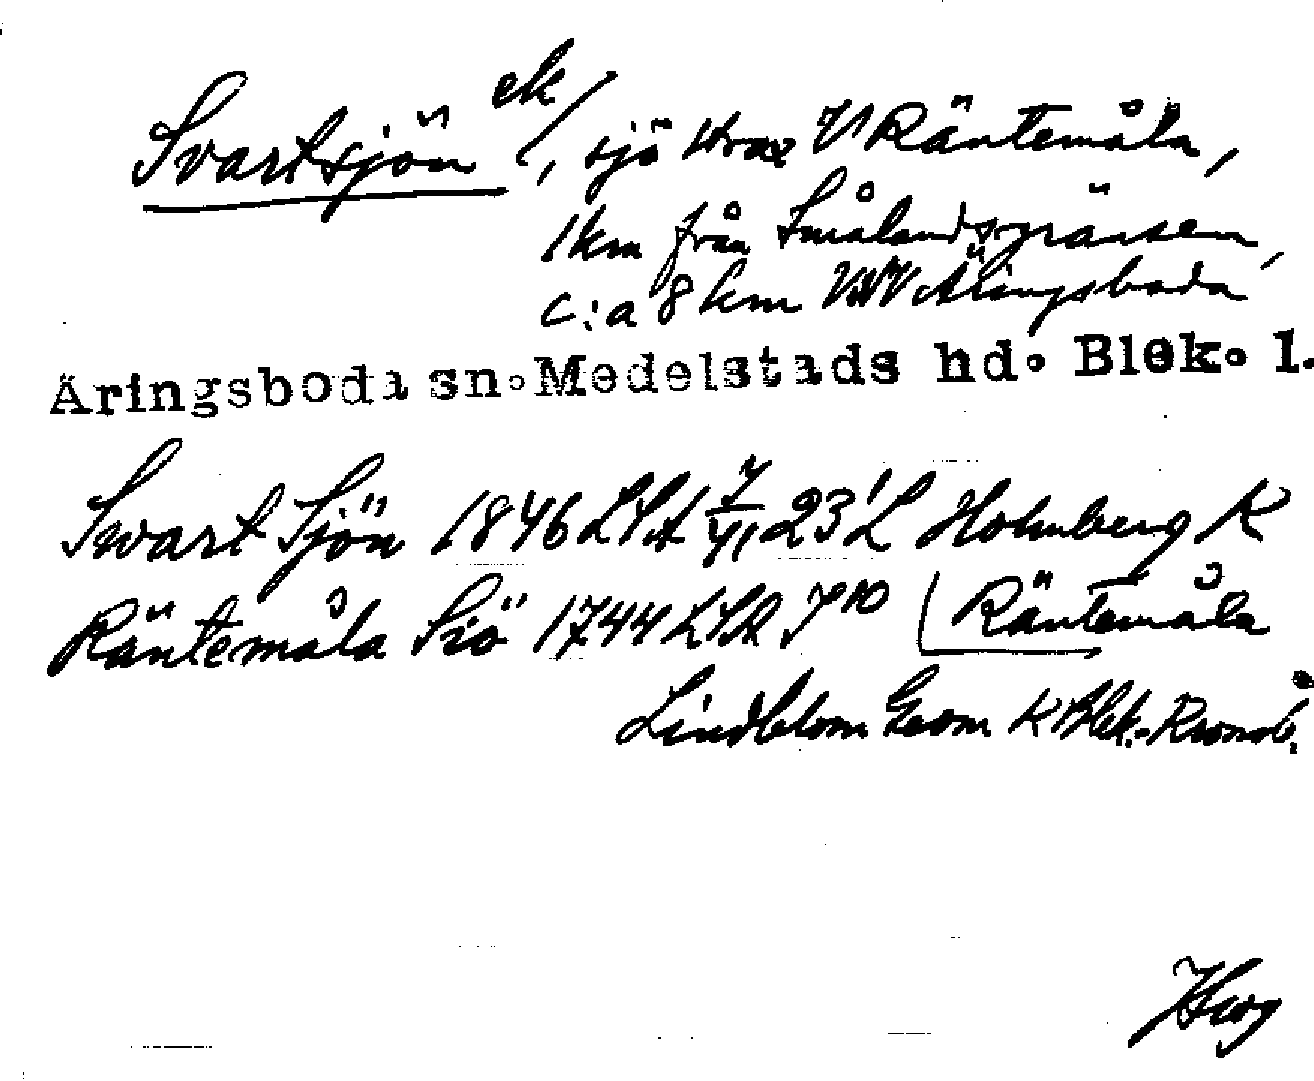 Svartsjön ek/, sjö strax V Räntemåla,
1 km från Smålandsgränsen,
c:a 8 km VNV Äringsboda
Äringsboda sn. Medelstads hd. Blek. l.
Svart Sjön 1846 LSA 7/41, 23 L Holmberg K
Räntemåla Siö 1744 LSA J 10 Räntemåla
Lindblom Geom K Blek.-Kronob.